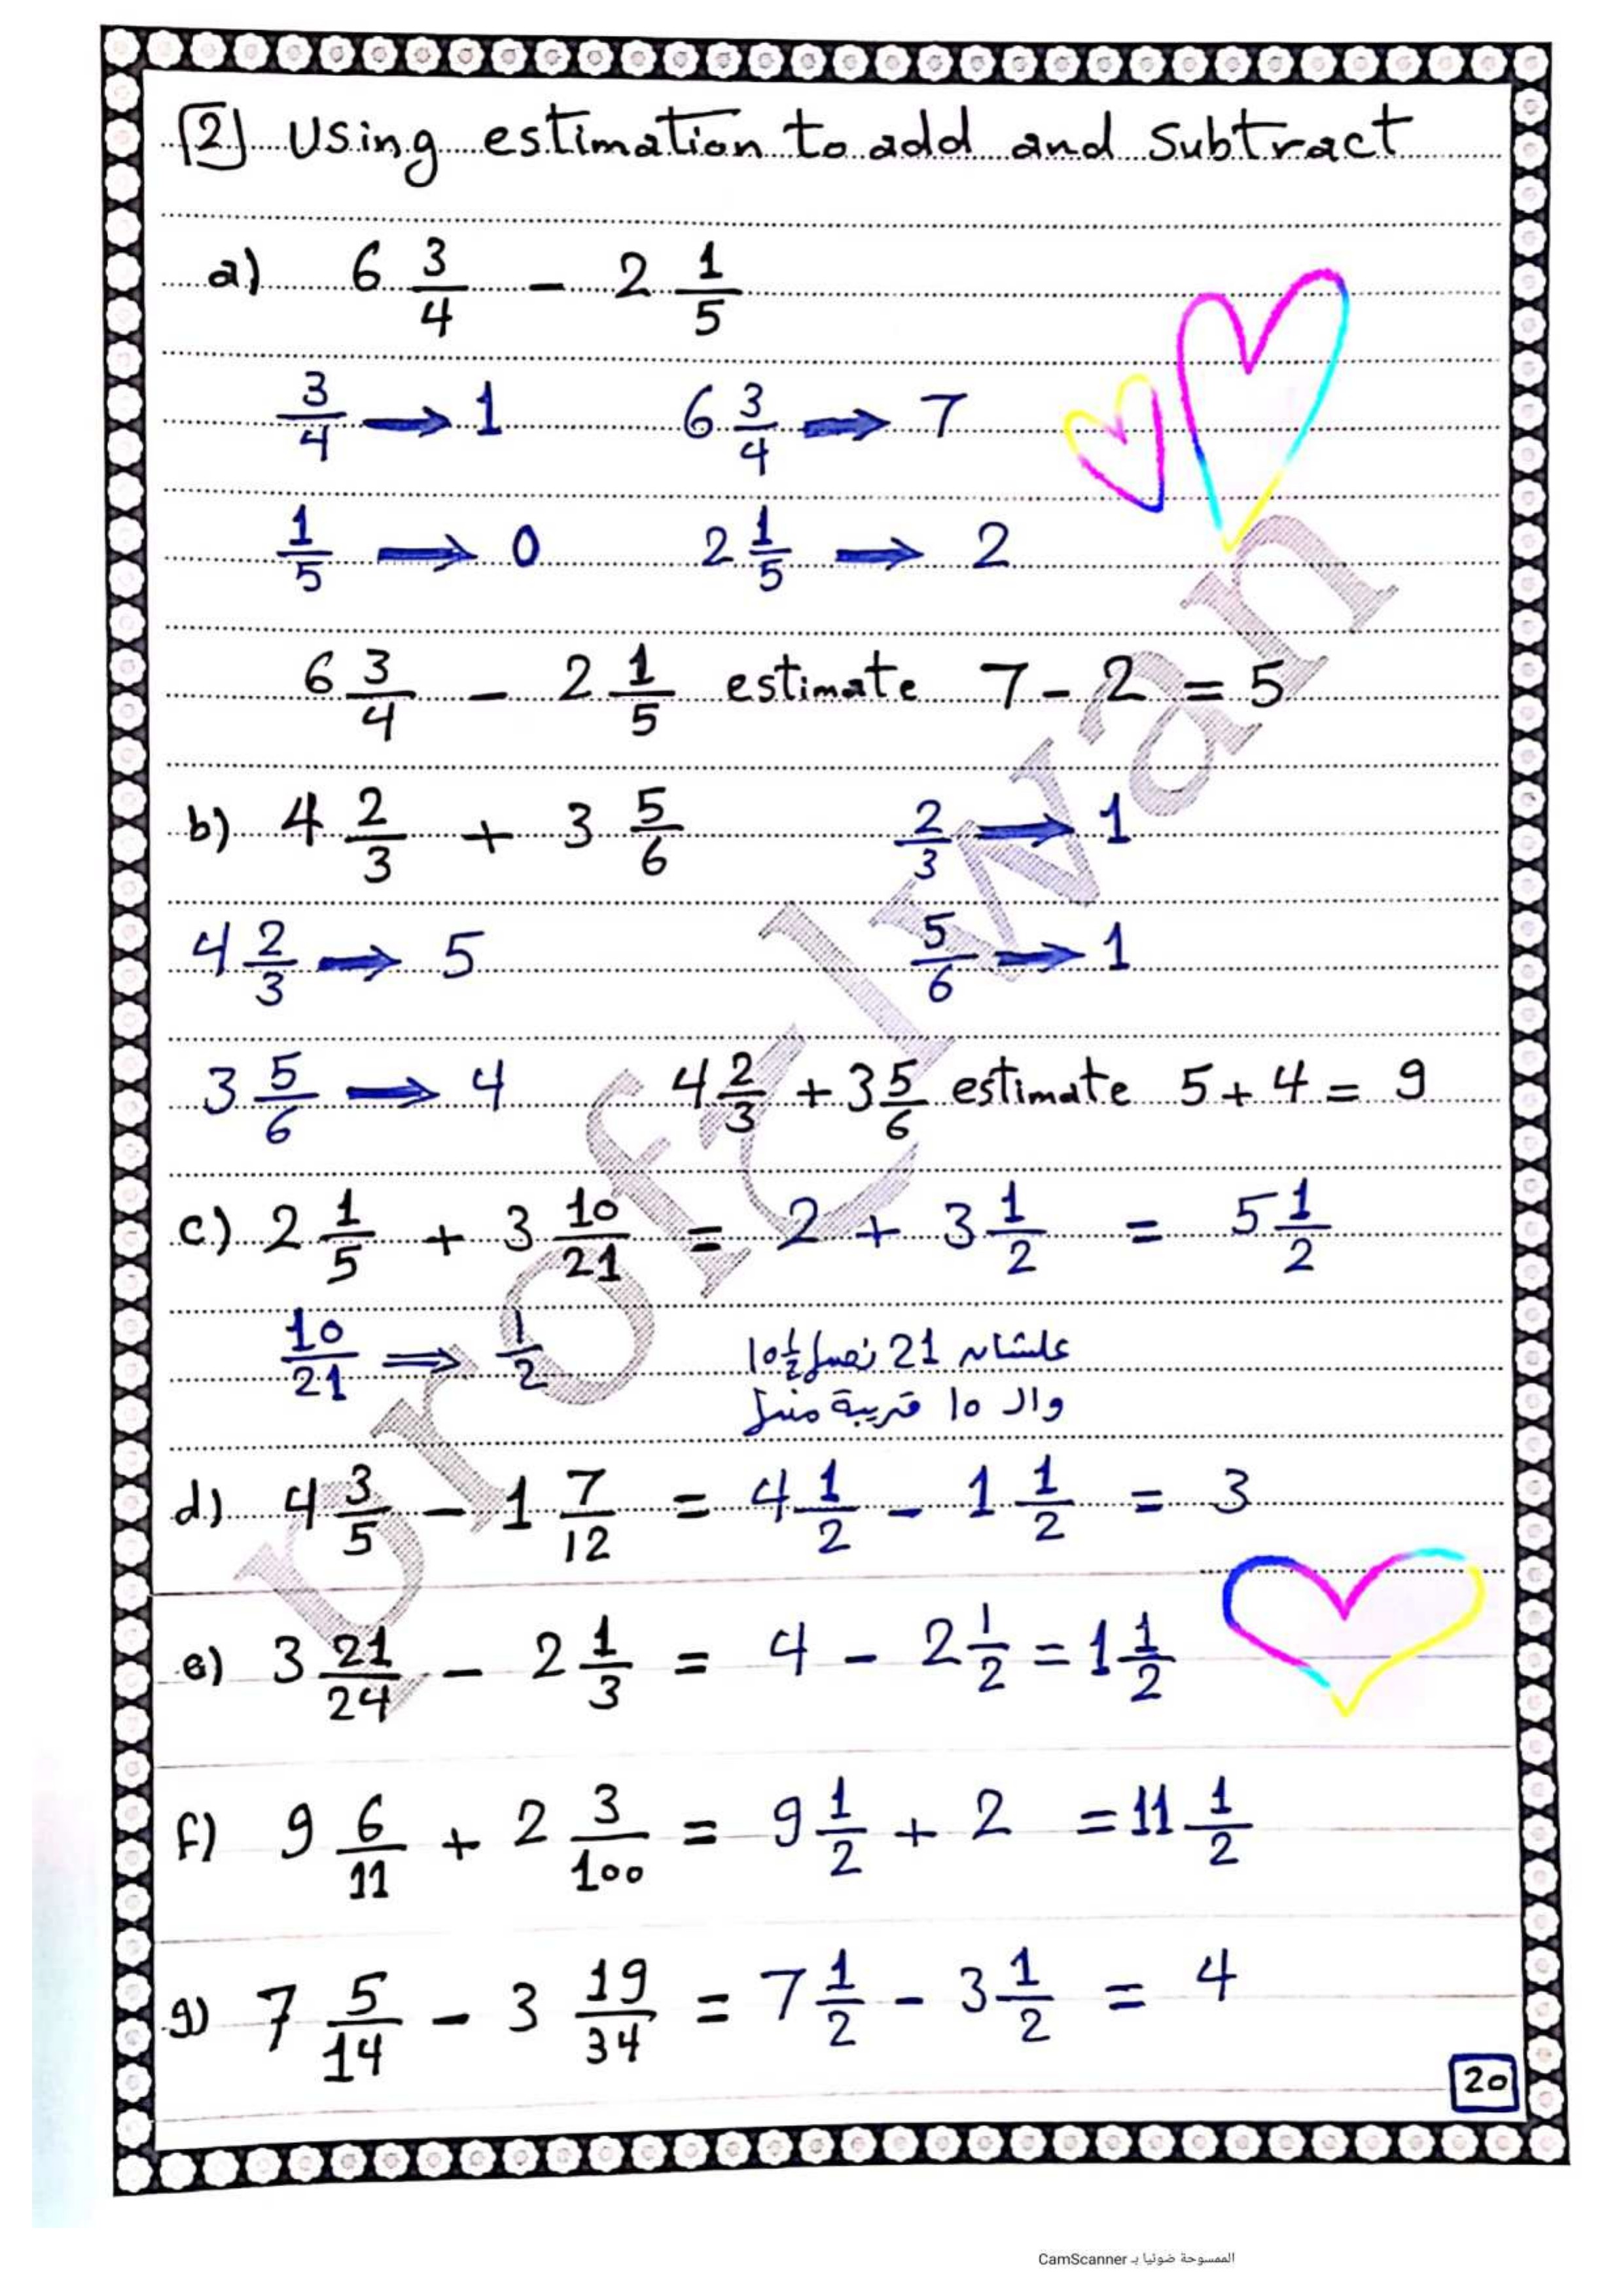 [2] Using estimation to add and subtract
a) 6 3/4 - 2 1/5
3/4 → 1 6 3/4 → 7
1/5 → 0 2 1/5 → 2
6 3/4 - 2 1/5 estimate 7 - 2 = 5
b) 4 2/3 + 3 5/6 2/3 → 1
4 2/3 → 5 5/6 → 1
3 5/6 → 4 4 2/3 + 3 5/6 estimate 5 + 4 = 9
c) 2 1/5 + 3 10/21 = 2 + 3 1/2 = 5 1/2
10/21 ⇒ 1/2 علشان 21 نصها 10 1/2
والـ 10 قريبة منها
d) 4 3/5 - 1 7/12 = 4 1/2 - 1 1/2 = 3
e) 3 21/24 - 2 1/3 = 4 - 2 1/2 = 1 1/2
f) 9 6/11 + 2 3/100 = 9 1/2 + 2 = 11 1/2
g) 7 5/14 - 3 19/34 = 7 1/2 - 3 1/2 = 4
20
prof Elwan
الممسوحة ضوئيا بـ CamScanner